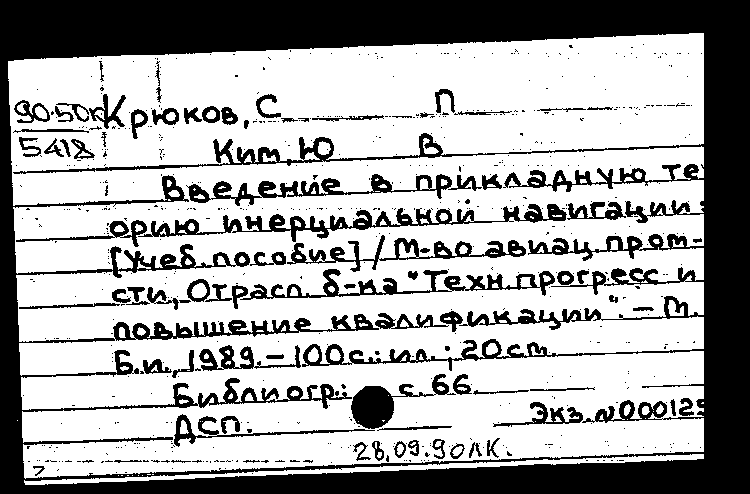 90-50к Крюков, С П
5418 Ким, Ю В
Введение в прикладную те
орию инерциальной навигации:
[Учеб. пособие] / М-во авиац. пром-
сти, Отрасл. б-ка "Техн. прогресс и
повышение квалификации". – М.
Б.и., 1989. – 100 с.: ил.; 20 см.
Библиогр.: с. 66.
ДСП. Экз. N 000125
28.09.90 ЛК.